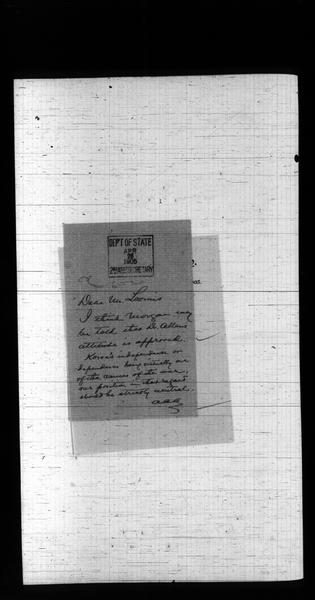 DEP'T OF STATE
APR
1905
2ND ASS'T SECRETARY
Dear Mr. Loomis
I think Morgan may
be told that Dr. Allen's
attitude is approved.
Korea's independence or
dependence being virtually one
of the causes of the war,
our position in that regard
should be strictly neutral.